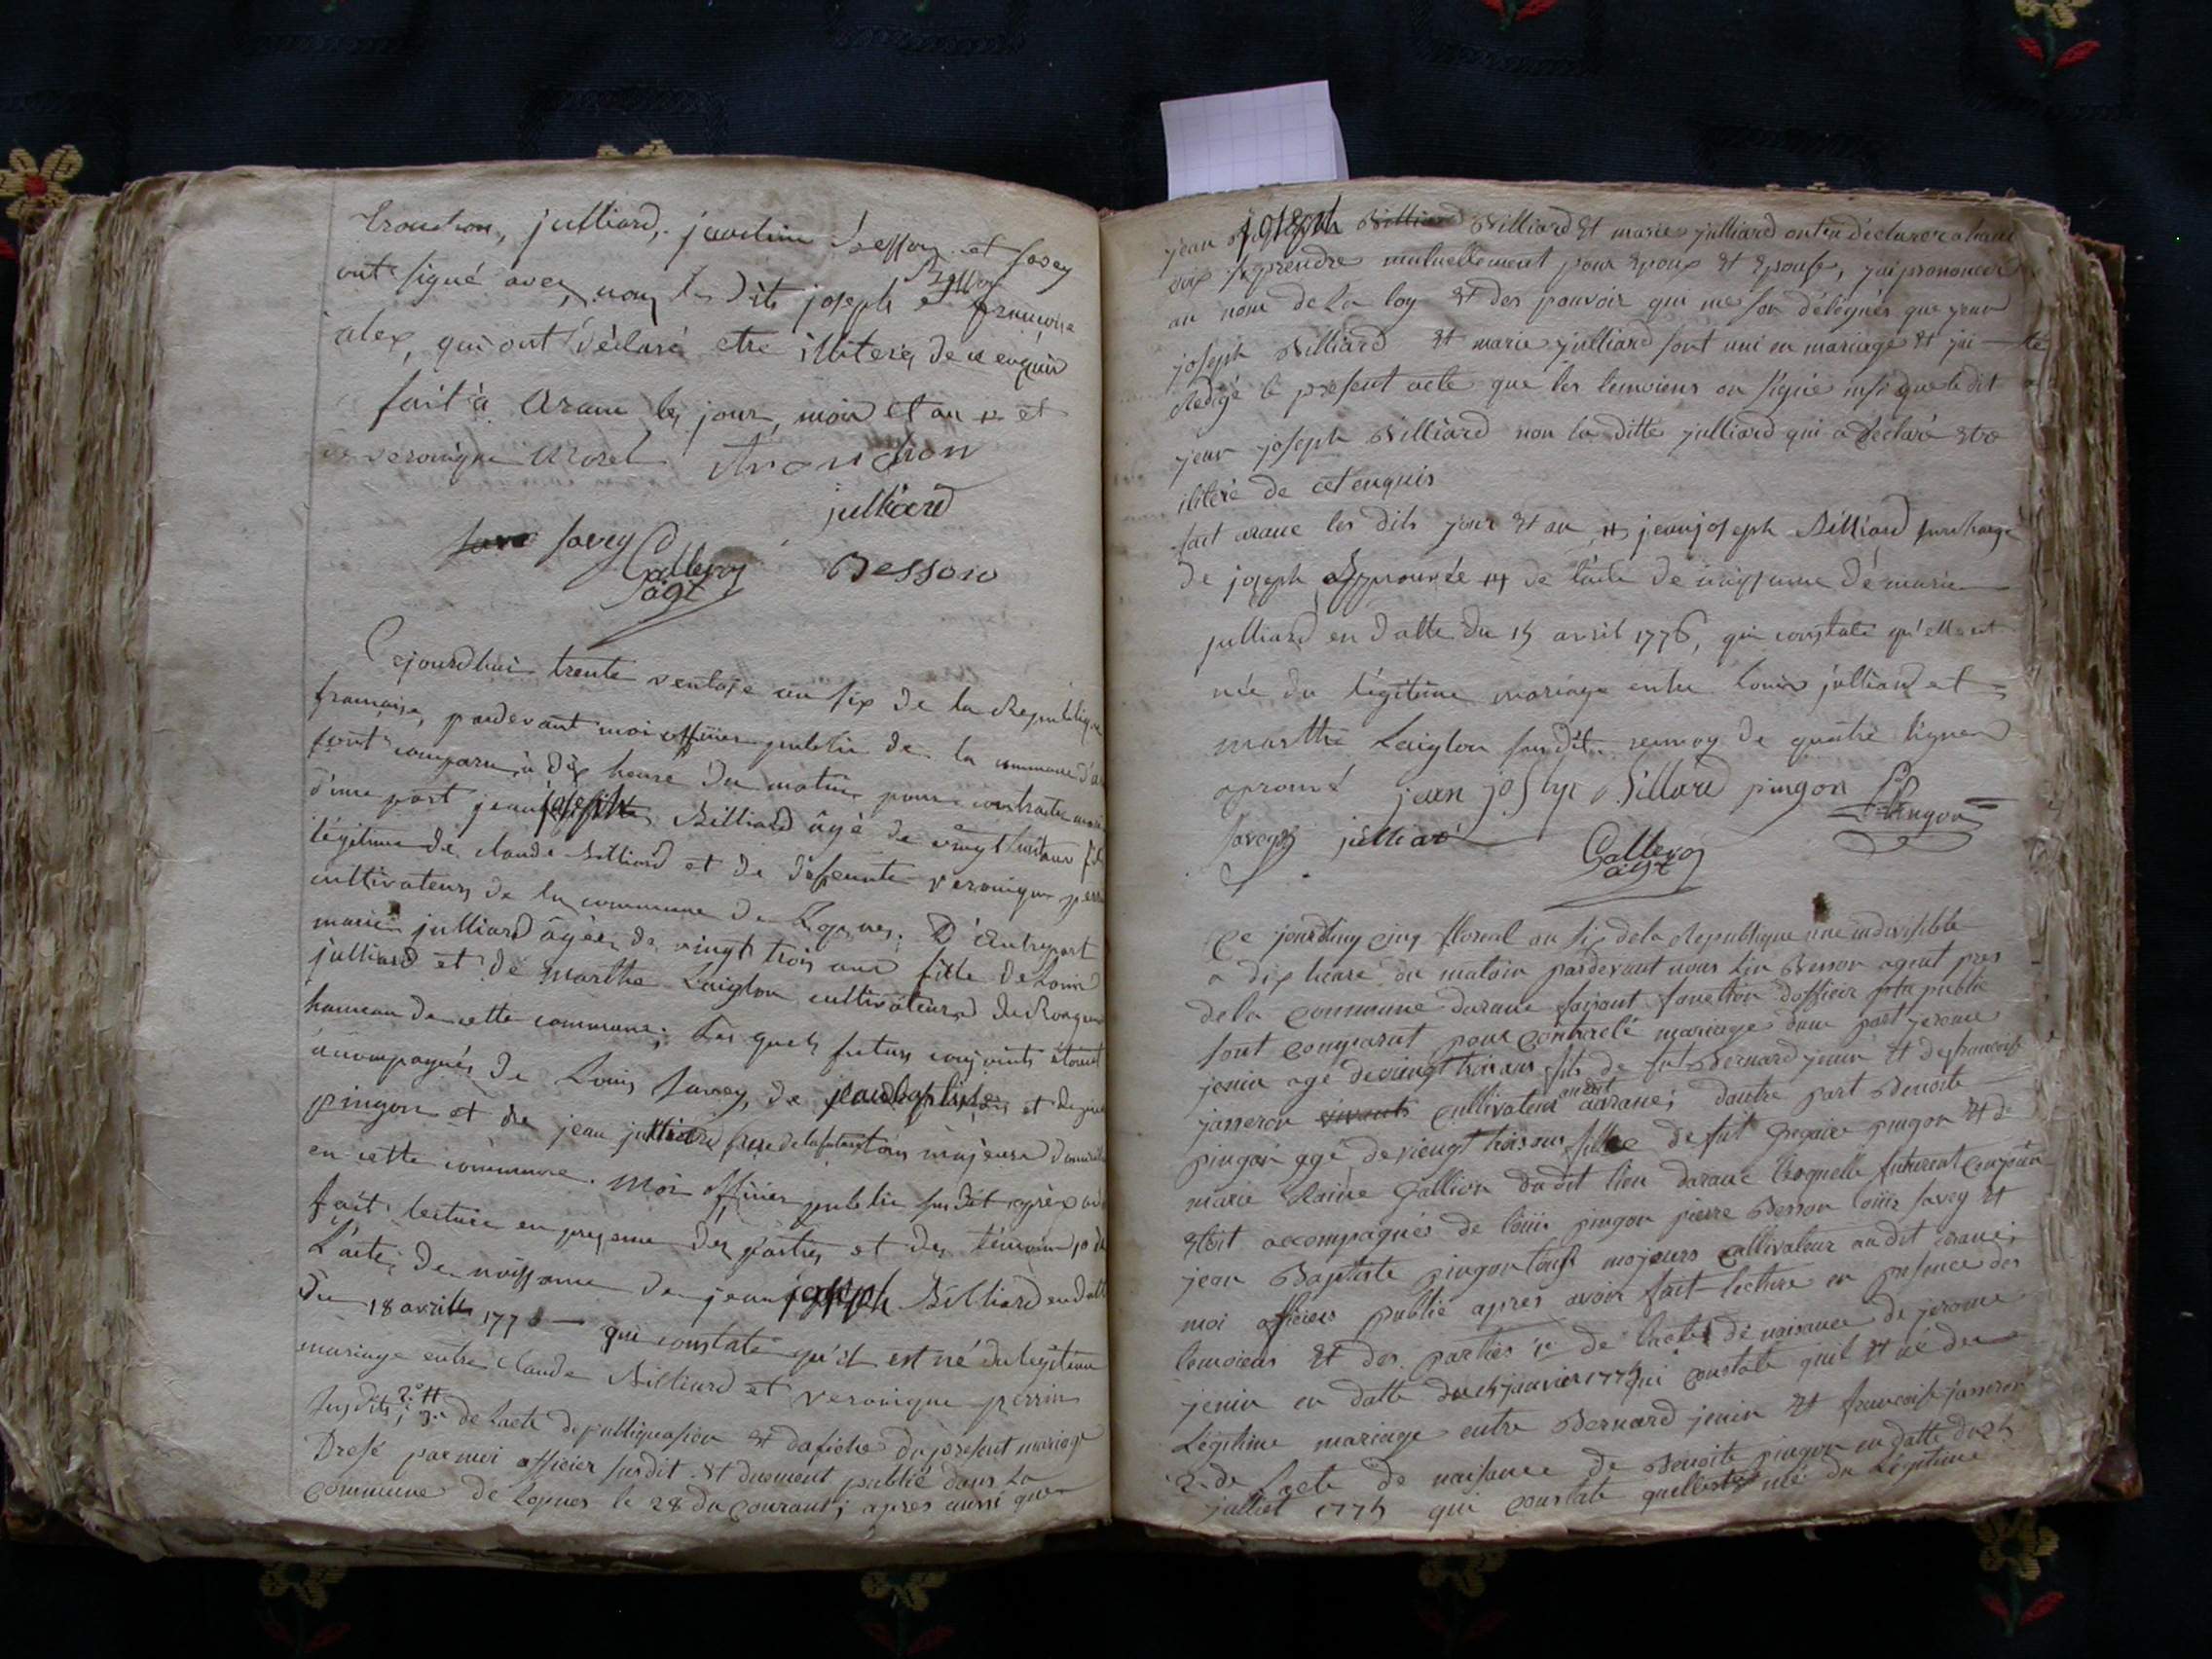 tronchon, julliard, Besson et savey
ont signé avec nous les dits joseph Besson et françoise
alex, qui ont déclaré etre illiteré de ce enquis
fait à arane les jour, mois et an et
veronique morel tronchon
julliard
savey
Gallevoy
agt
Besson
Cejourdhui trente ventose an six de la Republique
française, pardevant moi officier public de la commune
sont comparu à dix heure du matin pour contracter
d'une part jean joseph Billiard âgé de vingt huit ans
légitime de claude Billiard et de deffeunte veronique
cultivateurs de la commune de D'autre part
marie julliard âgée de vingt trois ans fille de Louis
julliard et de marthe Laiglon cultivateurs de
hameau de cette commune; Les quels futurs conjoints étant
acompagnés de Louis Savey, de jean baptiste et
pingon et de jean julliard frere de la future tous majeurs
en cette commune. Moi officier public susdit après
fait lecture en presence des parties et des témoins
L'acte de naissance de jean joseph Billiard en datte
Du 18 avril 177 qui constate qu'il est né du legitime
mariage entre claude Billiard et veronique perrin
susdits; 2° 3° de lacte de publiquasion et dafiche du present mariage
Dresé par moi officier susdit et duement publié dans la
commune de Lopnes le 28 du courant; apres aussi que
jean joseph Billiard et marie julliard ont déclaré a haute
voix se prendre mutuellement pour epoux et epouse, jai prononcer
au nom de la loy et des pouvoir qui me son délégués que jean
joseph Billiard et marie julliard sont uni en mariage et jai
Redigé le present acte que les temoiens on signé insi que le dit
jean joseph Billiard non la ditte julliard qui a déclaré etre
iliteré de cet enquis
fait arane les dits jour et an jean joseph Billiard surcharge
de joseph approuvée de l'acte de naissance de marie
julliard en datte du 15 avril 1776, qui constate qu'elle est
née du légitime mariage entre Louis julliard et
marthe Laiglon susdit. renvoy de quatre lignes
aprouvé jean joseph Billiard pingon pingon
savey julliard
Gallevoy
agt
Ce jourdhuy cinq floreal an six dela Republique une indivisible
a dix heure du matain pardevant nous Besson agent
dela commune darane faisant fonction dofficier publie
sont comparut pour contracté mariage dune part jerome
jenin agé de vingt trois ans fils de fut Bernard jenin et de francoise
jasseron cultivateur audit arane; dautre part Benoite
pingon agé de viengt trois ans fille de fut Gregoire pingon et de
marie claire Gallion dudit lieu darane lesquelle futurent conjoin
etoit accompagnés de loüis pingon pierre Besson loüis savey et
jean Baptiste pingon tous majeurs cultivateur audit arane;
moi officiers publie apres avoir fait lecture en presence des
temoiens et des parties 1° de lacte de naisance de jerome
jenin en datte du janvier 177 qui constate quil et né du
Légitime mariage entre Bernard jenin et francoise jasseron
2° de lacte de naisance de Benoite pingon en datte du 25
julliet 1775 qui constate quelle est née du Légitime